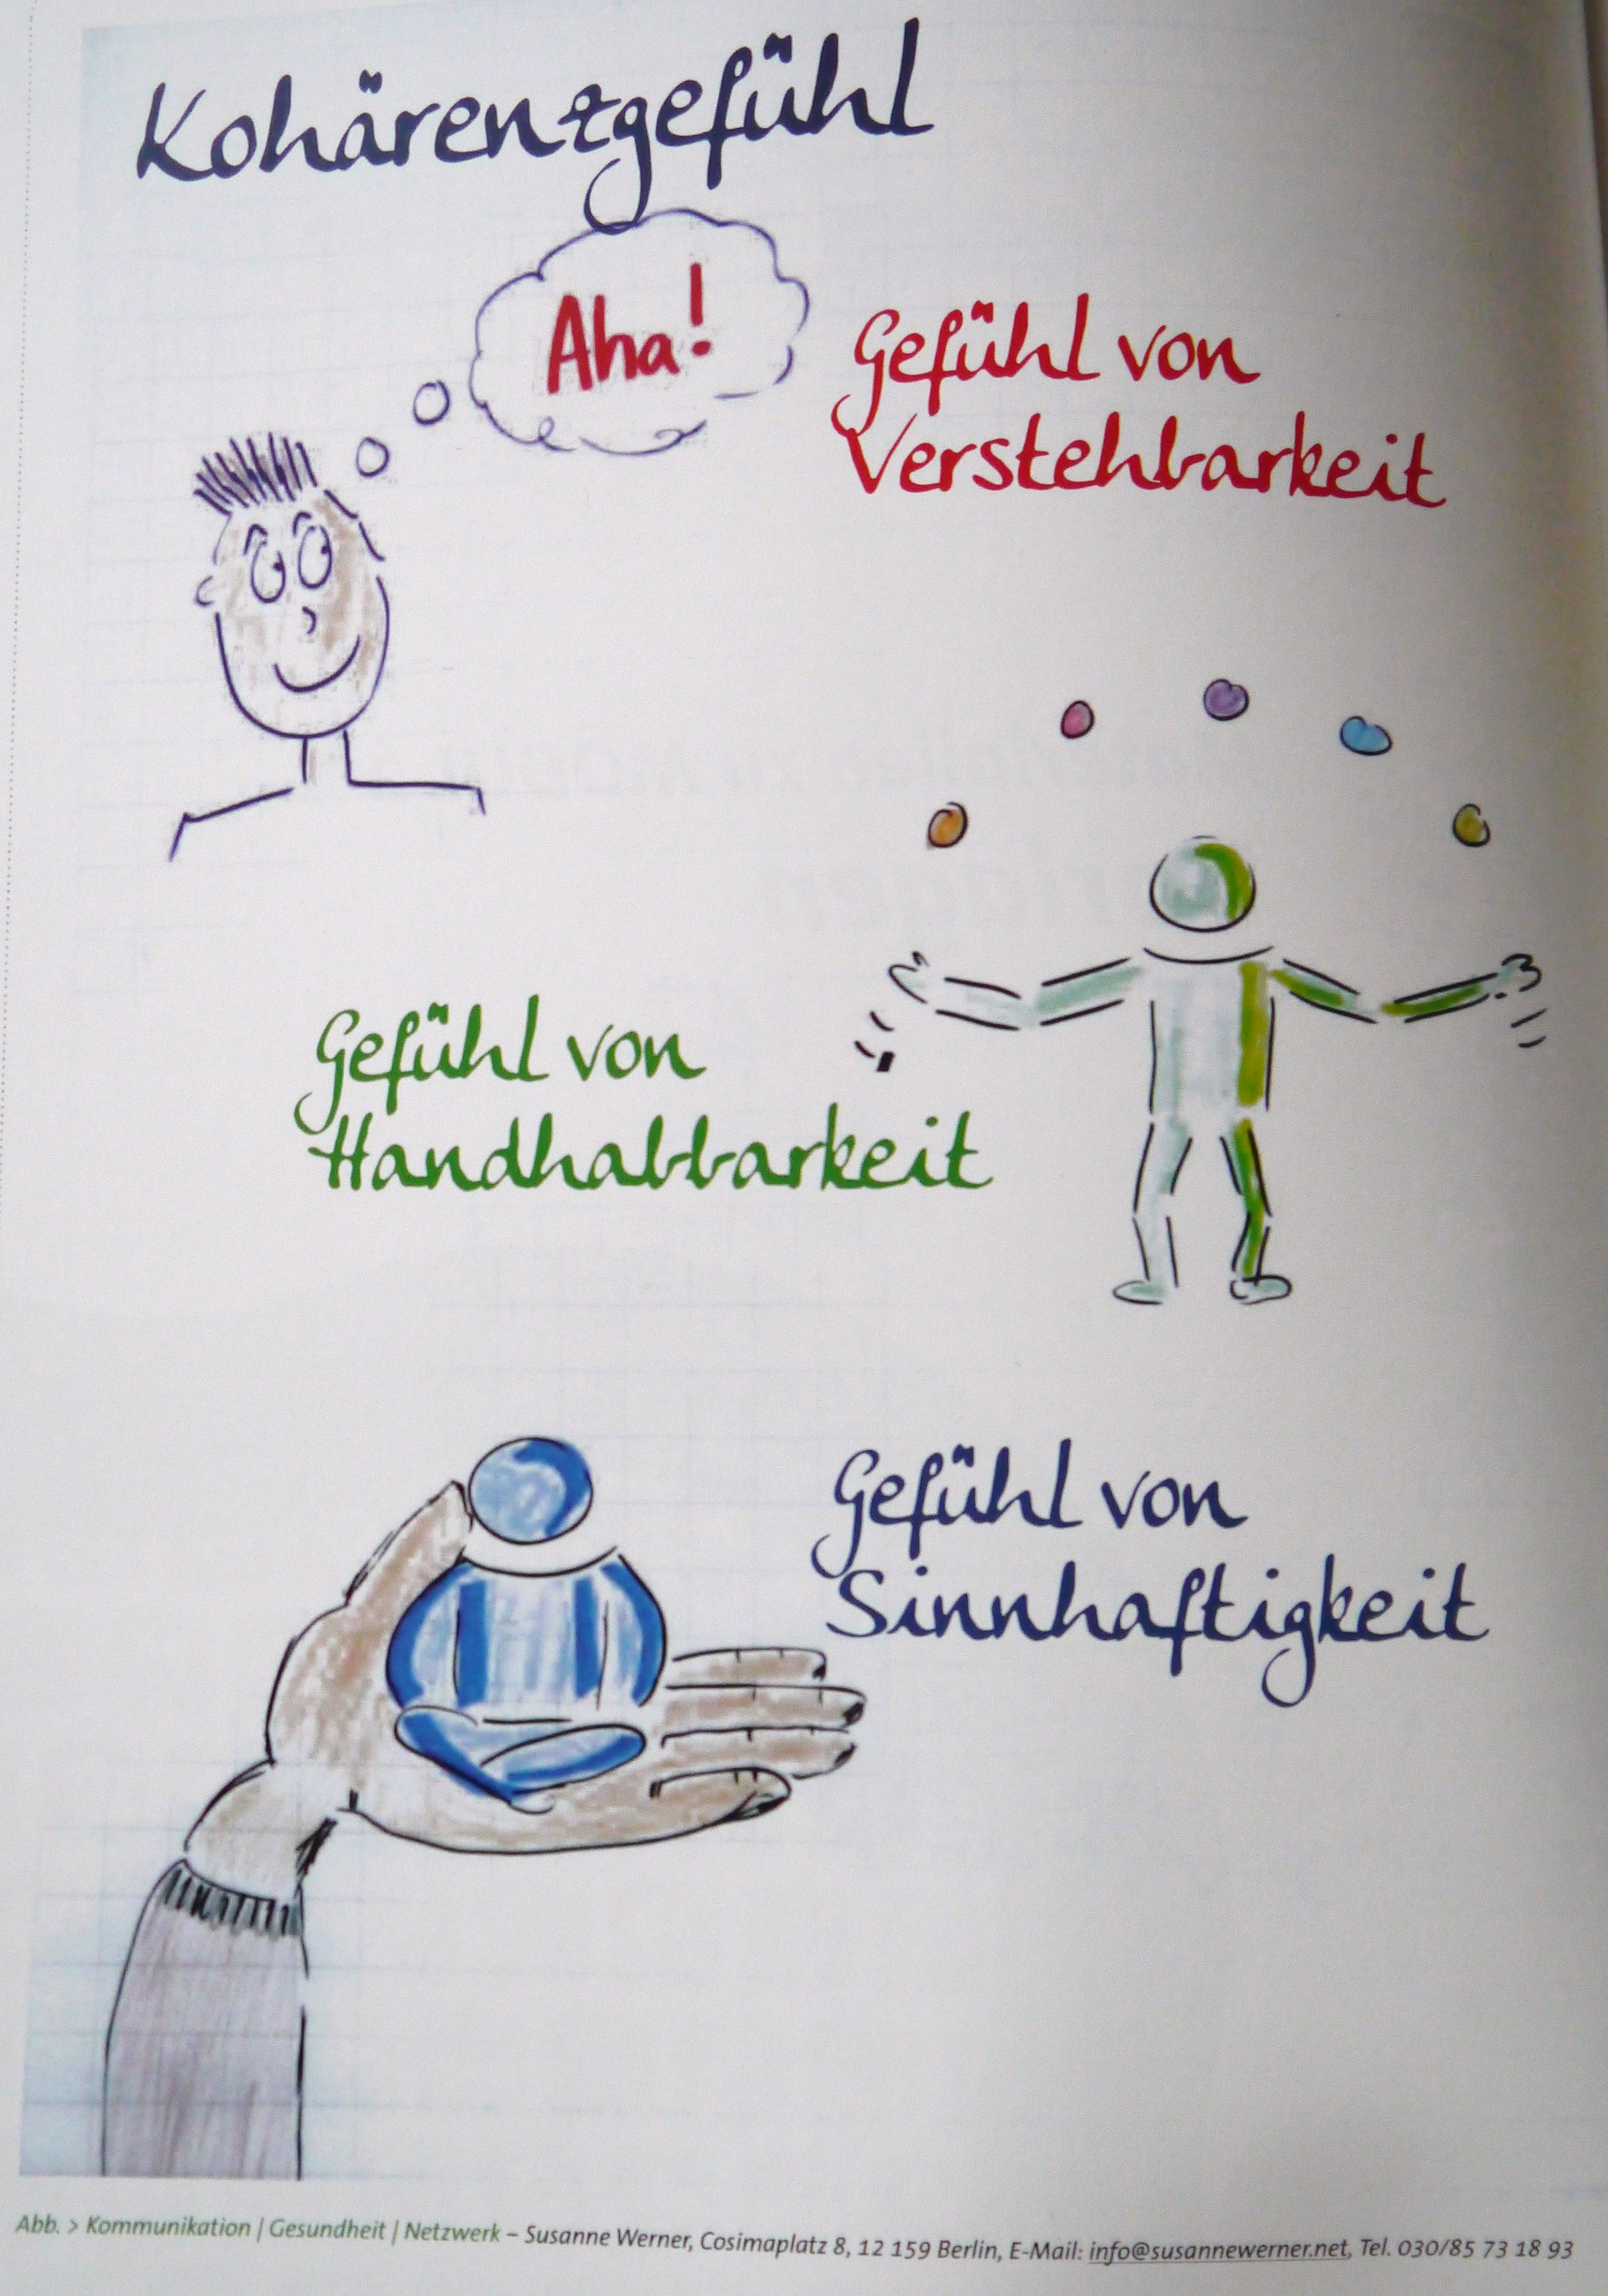 Kohärenzgefühl
Aha!
Gefühl von
Verstehbarkeit
Gefühl von
Handhabbarkeit
Gefühl von
Sinnhaftigkeit
Abb. > Kommunikation | Gesundheit | Netzwerk – Susanne Werner, Cosimaplatz 8, 12 159 Berlin, E-Mail: info@susannewerner.net, Tel. 030/85 73 18 93